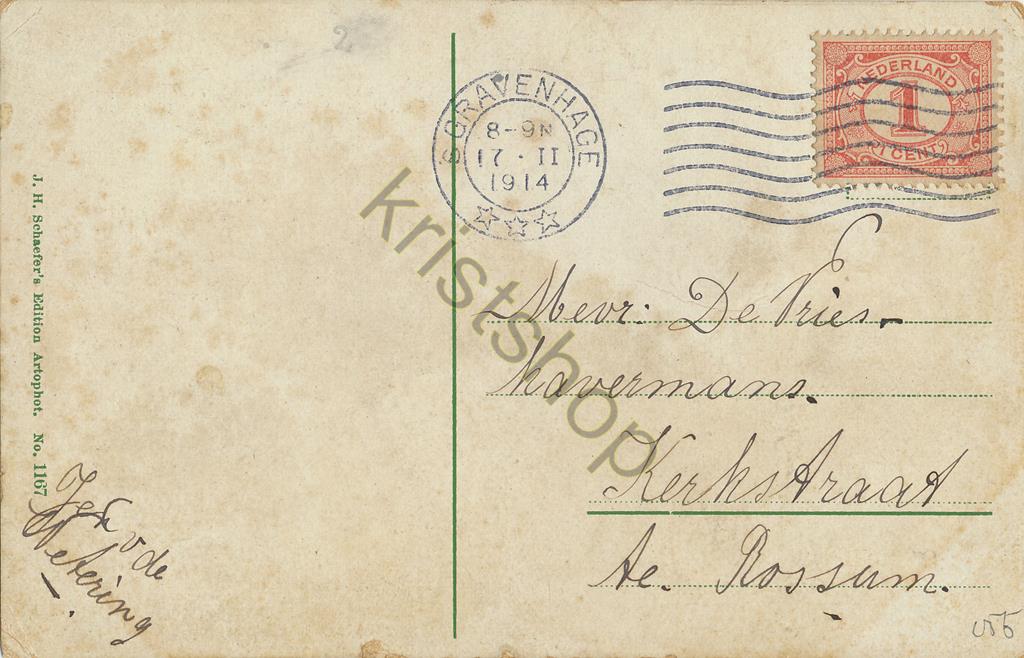 2
S GRAVENHAGE
8-9N
17·II
1914
NEDERLAND
1
1 CENT
J. H. Schaefer's Edition Artophot. No. 1167
v de
Wetering
Mevr. De Vries.
Havermans.
Kerkstraat
te. Rossum.
kristshop